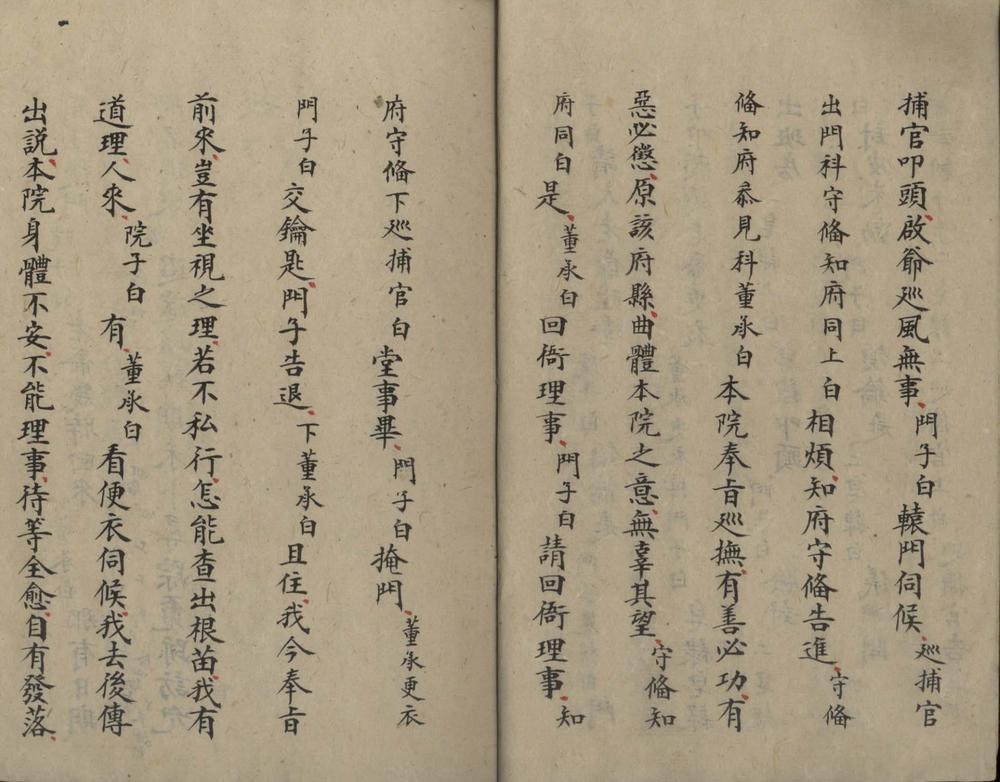 捕官叩頭啟爺巡風無事門子白轅門伺候巡捕官
出門科守俻知府同上白相煩知府守俻告進守俻
俻知府叅見科董承白本院奉旨巡撫有善必功有
惡必懲原該府縣曲體本院之意無辜其望守俻知
府同白是董承白回衙理事門子白請回衙理事知
府守俻下巡捕官白堂事畢門子白掩門董承更衣
門子白交鑰匙門子告退下董承白且住我今奉旨
前來豈有坐視之理若不私行怎能查出根苗我有
道理人來院子白有董承白看便衣伺候我去後傳
出説本院身體不安不能理事待等全愈自有發落